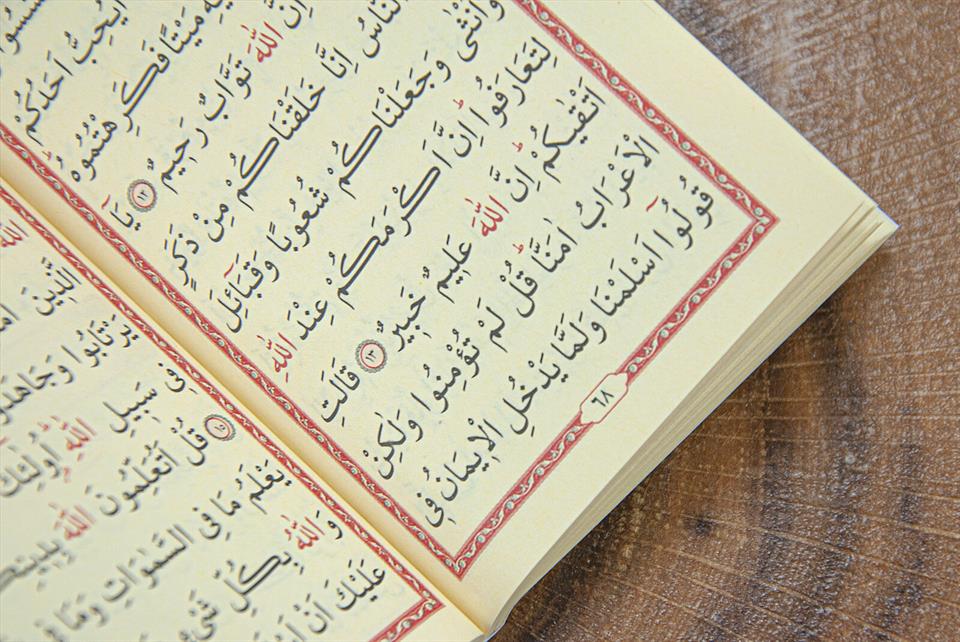 اَيُحِبُّ اَحَدُكُمْ
مَيْتًا فَكَرِهْتُمُوهُۜ
اِنَّ اللّٰهَ تَوَّابٌ رَحٖيمٌ ١٢ يَٓا
النَّاسُ اِنَّا خَلَقْنَاكُمْ مِنْ ذَكَرٍ
وَاُنْثٰى وَجَعَلْنَاكُمْ شُعُوبًا وَقَبَٓائِلَ
لِتَعَارَفُواۜ اِنَّ اَكْرَمَكُمْ عِنْدَ اللّٰهِ
اَتْقٰيكُمْۜ اِنَّ اللّٰهَ عَلٖيمٌ خَبٖيرٌ ١٣ قَالَتِ
الْاَعْرَابُ اٰمَنَّاۜ قُلْ لَمْ تُؤْمِنُوا وَلٰكِنْ
قُولُٓوا اَسْلَمْنَا وَلَمَّا يَدْخُلِ الْاٖيمَانُ فٖي
٦٨
الَّذٖينَ
يَرْتَابُوا وَجَاهَدُوا
فٖي سَبٖيلِ اللّٰهِۜ اُولٰٓئِكَ
١٥ قُلْ اَتُعَلِّمُونَ اللّٰهَ
يَعْلَمُ مَا فِي السَّمٰوَاتِ وَمَا فِي
وَاللّٰهُ بِكُلِّ شَيْءٍ
عَلَيْكَ اَنْ